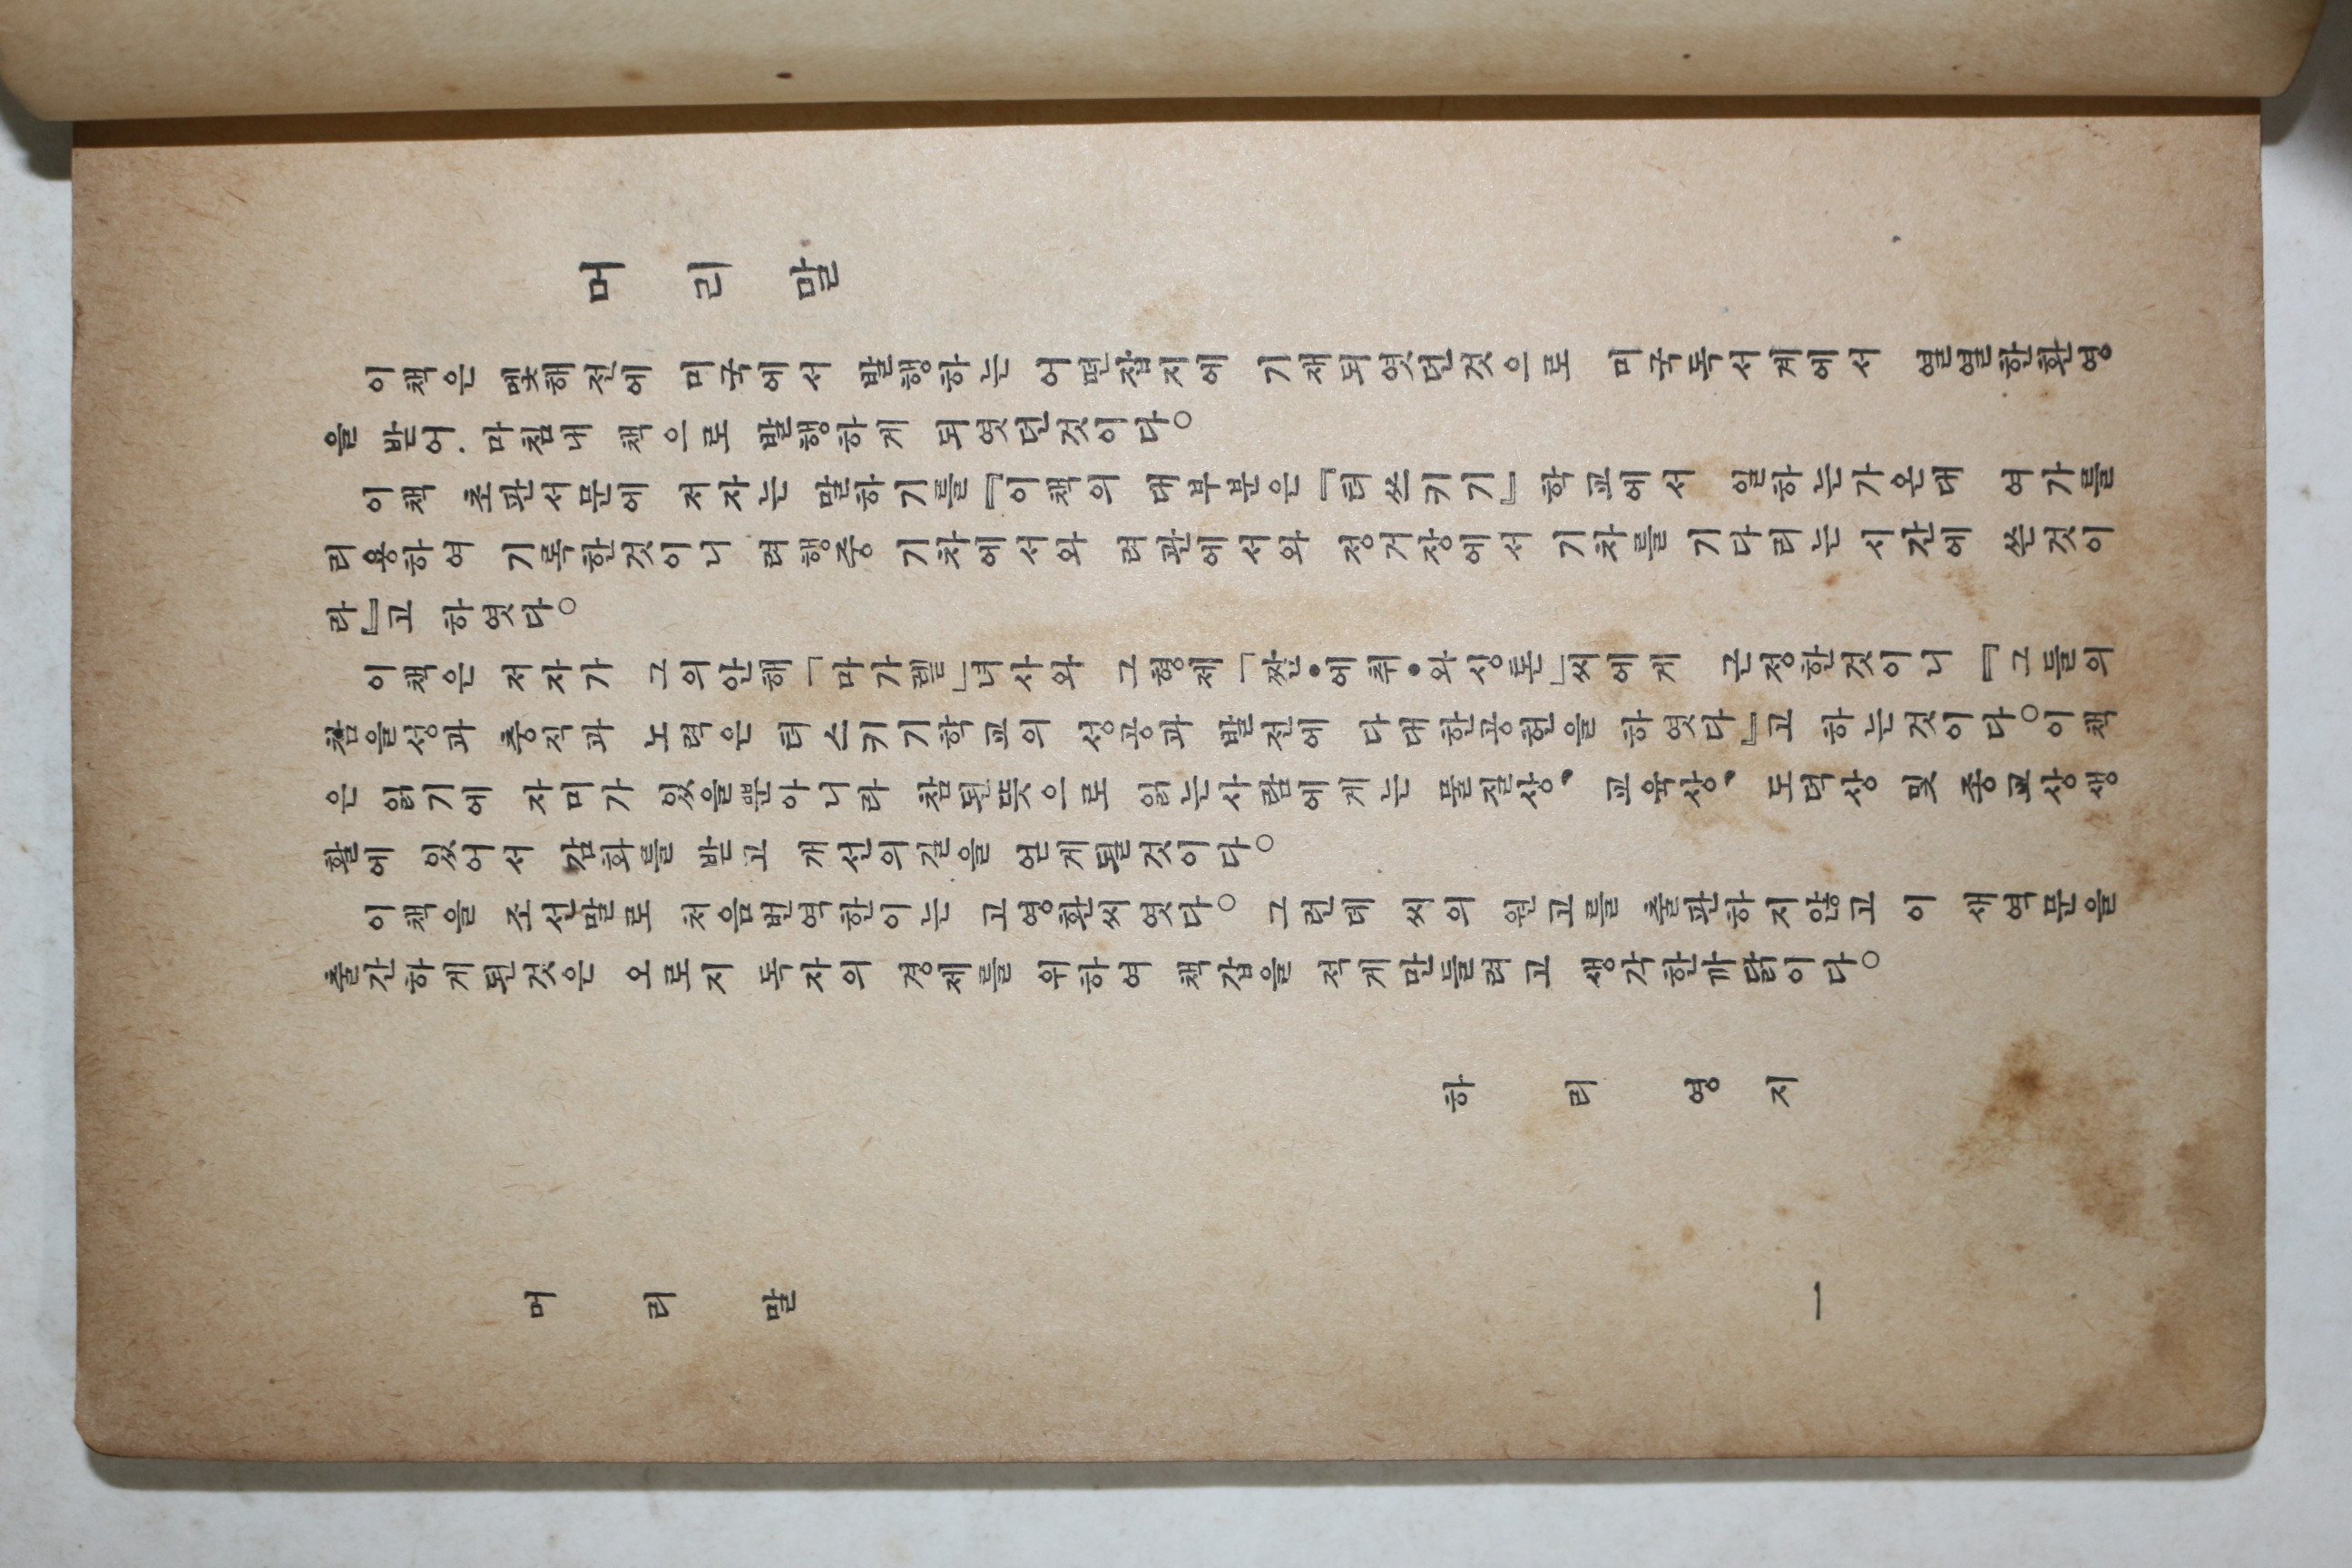 머리말
이책은 몇해전에 미국에서 발행하는 어떤잡지에 기재되엿던것으로 미국독서계에서 열열한환영
을 받어 마침내 책으로 발행하게 되엿던것이다。
이책 초판서문에 저자는 말하기를『이책의 대부분은『터쓰키기』학교에서 일하는가온대 여가를
리용하여 기록한것이니 려행중 기차에서와 려관에서와 정거장에서 기차를 기다리는 시간에 쓴것이
라』고 하엿다。
이책은 저자가 그의안해「마가렡」녀사와 그형제「짠•에취•와싱톤」씨에게 근정한것이니『그들의
참을성과 충직과 노력은 터스키기학교의 성공과 발전에 다대한공헌을 하엿다』고 하는것이다。이책
은 읽기에 자미가 있을뿐아니라 참된뜻으로 읽는사람에게는 물질상、교육상、도덕상 및 종교상생
활에 있어서 감화를 받고 개선의길을 얻게될것이다。
이책을 조선말로 처음번역한이는 고영환씨엿다。그런데 씨의 원고를 출판하지않고 이 새역문을
출간하게된것은 오로지 독자의 경제를 위하여 책갑을 적게만들려고 생각한까닭이다。
하리영지
머리말
一